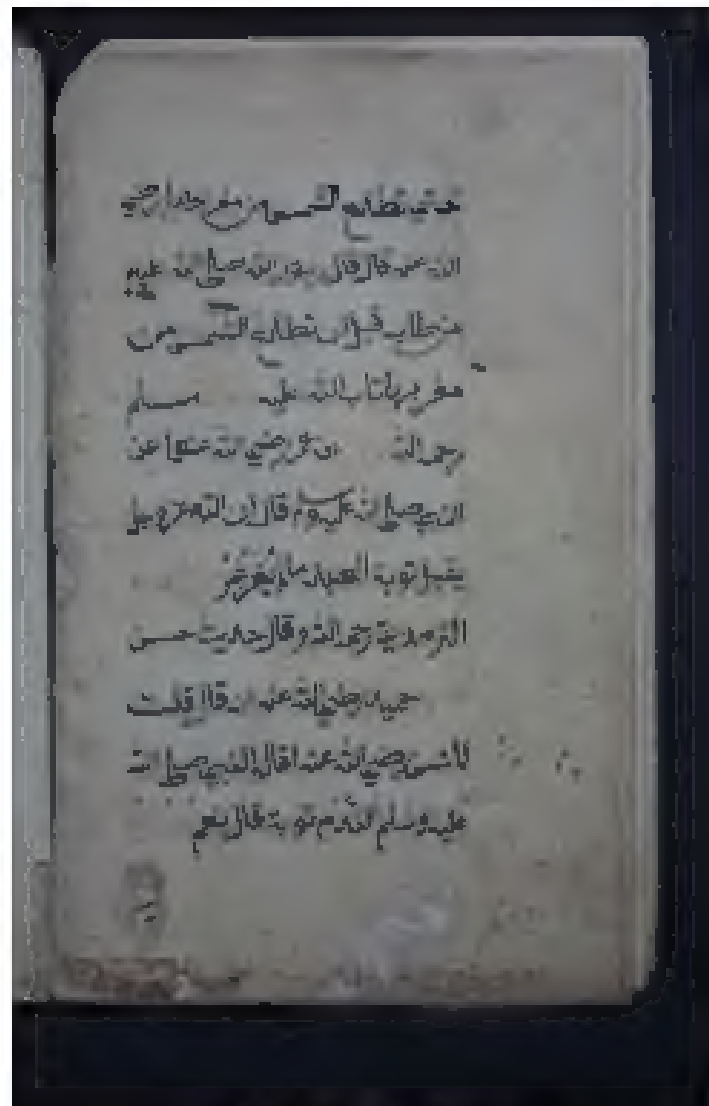 حتى تطلع الشمس من مغربها رضي
الله عنه قال قال رسول الله صلى الله عليه
من تاب قبل ان تطلع الشمس من
مغربها تاب الله عليه مسلم
رحمه الله ابن عمر رضي الله عنهما عن
النبي صلى الله عليه وسلم قال ان الله عز وجل
يقبل توبة العبد ما لم يغرغر
الترمذي رحمه الله وقال حديث حسن
حميد رضي الله عنه قال قلت
لأنس رضي الله عنه اقال النبي صلى الله
عليه وسلم الندم توبة قال نعم